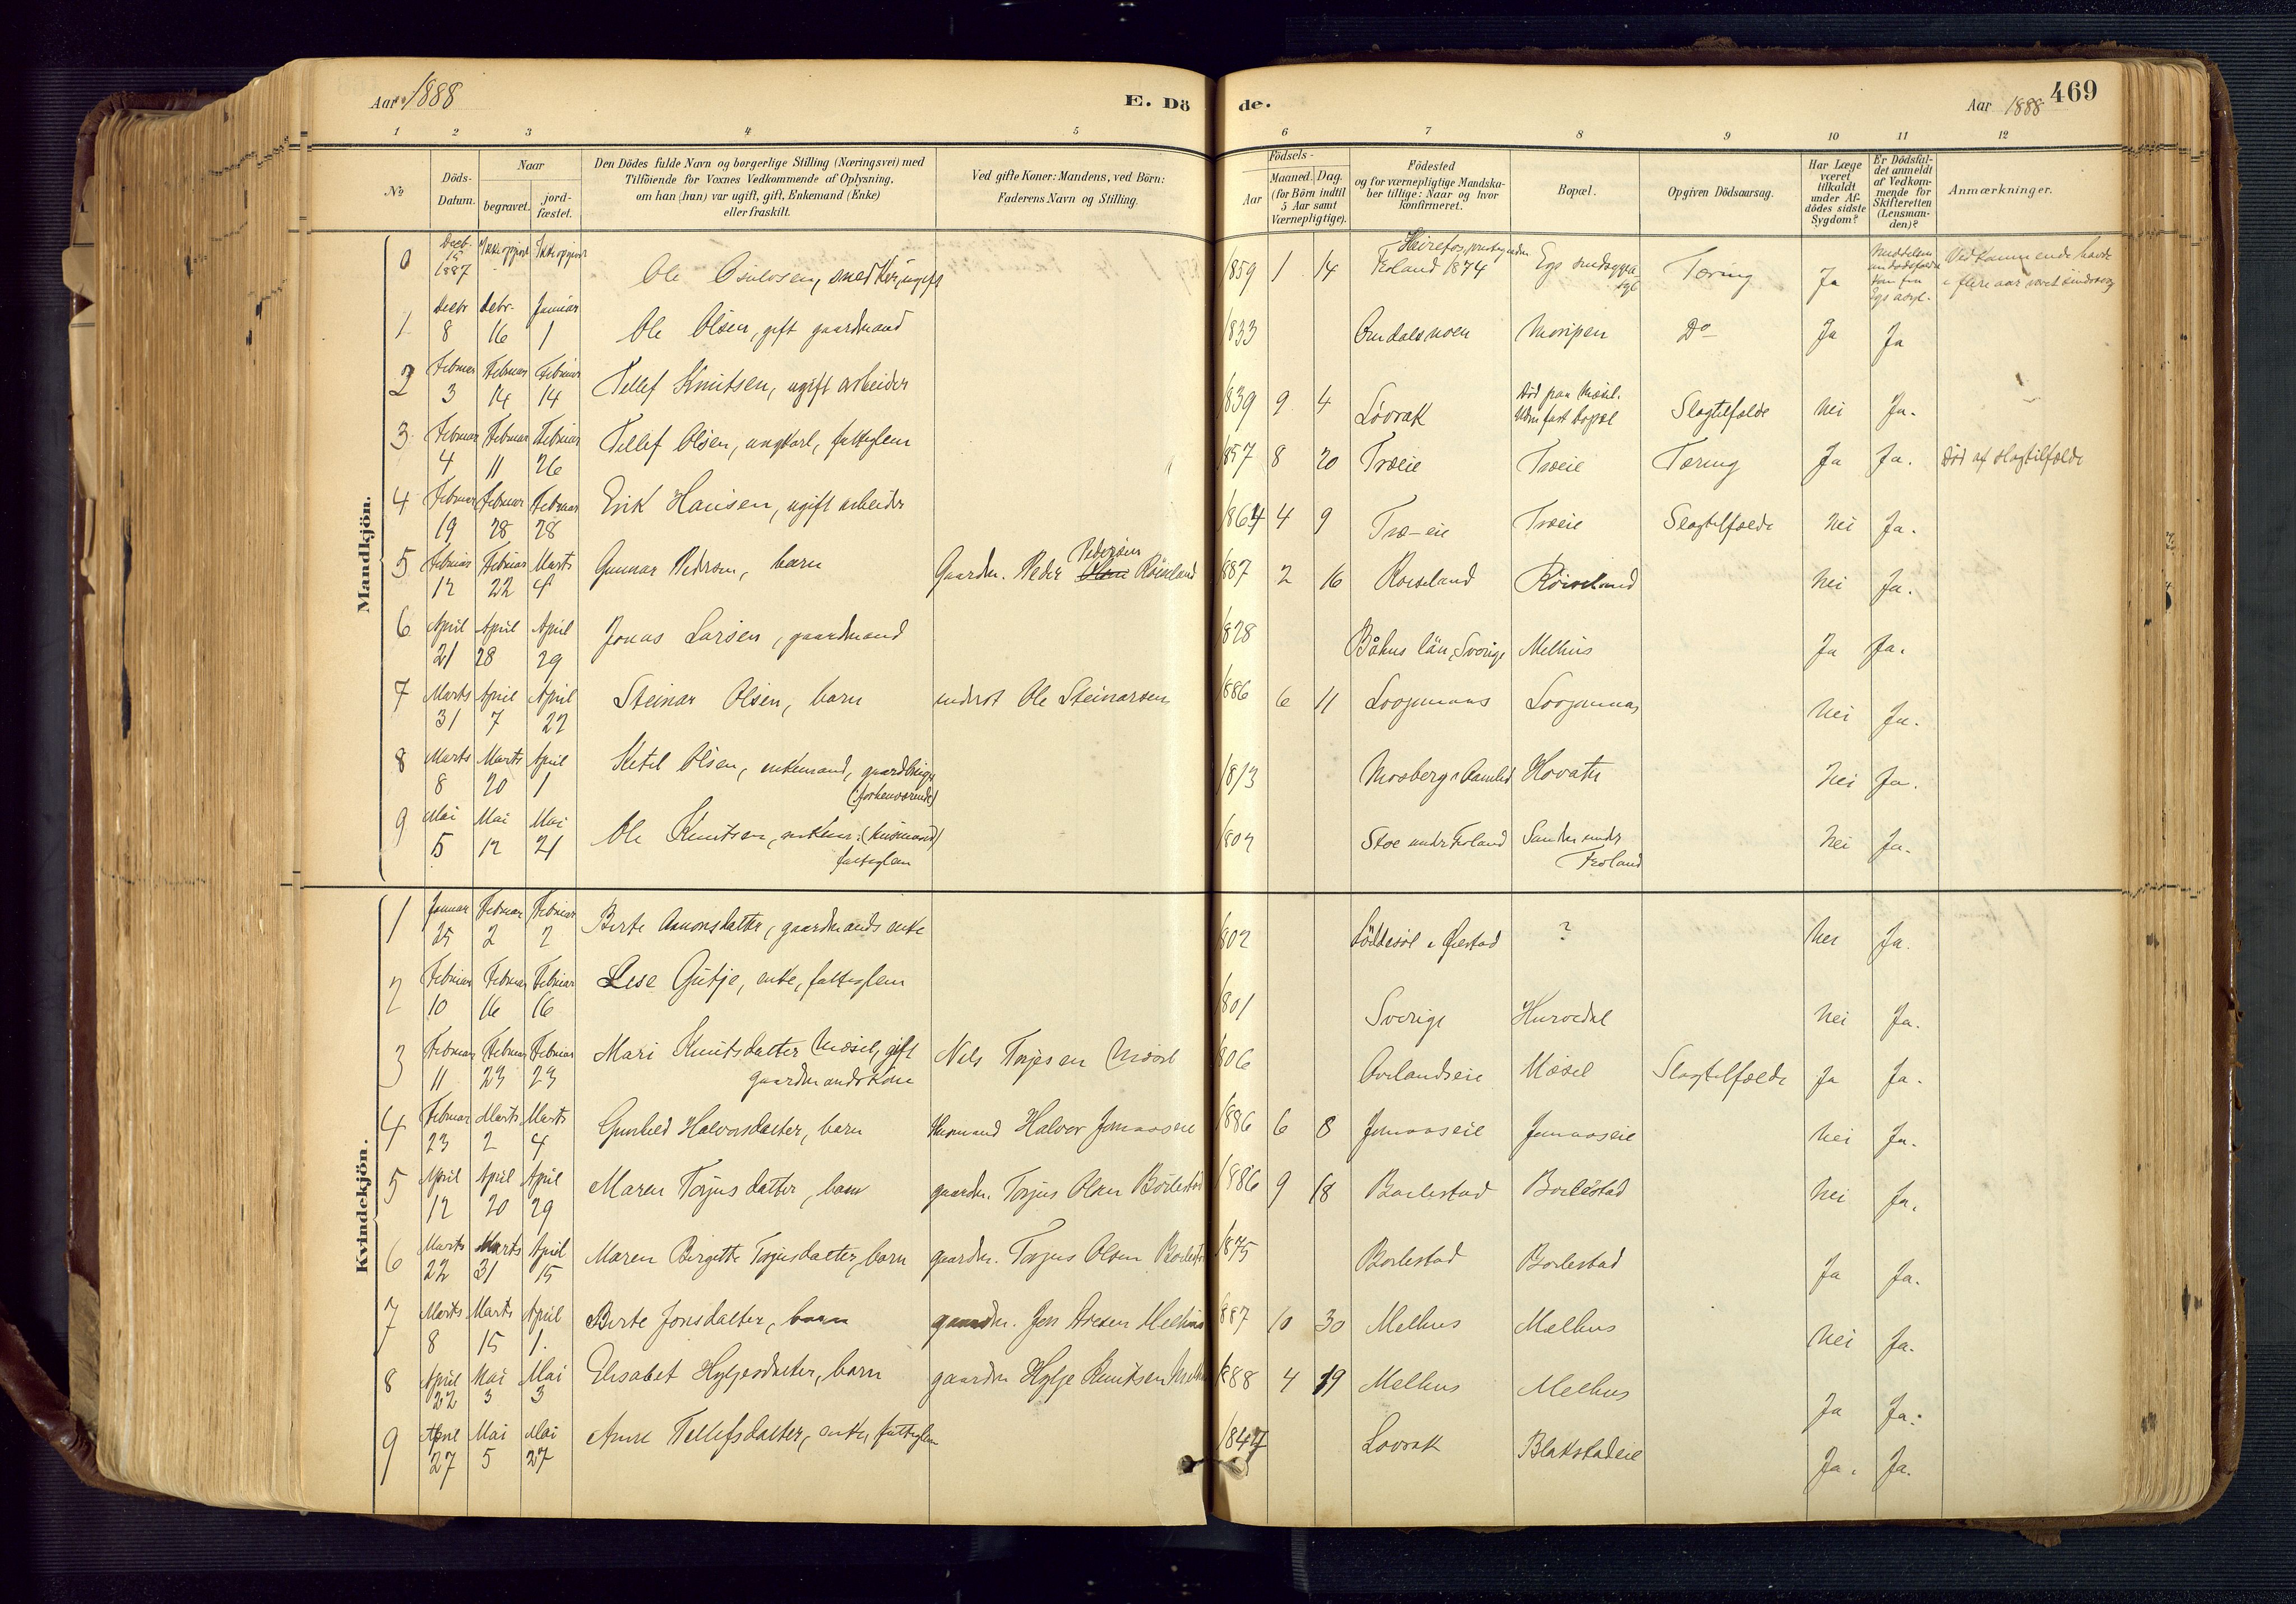 Aar 1888
E. Dö
de.
Aar 1888
469
1 2 3 4 5 6 7 8 9 10 11 12
No
Döds-Datum.
Naar
begravet.
jord-fæstet.
Den Dödes fulde Navn og borgerlige Stilling (Næringsvei) med
Tilföiende for Voxnes Vedkommende af Oplysning,
om han (hun) var ugift, gift, Enkemand (Enke)
eller fraskilt.
Ved gifte Koner: Mandens, ved Börn:
Faderens Navn og Stilling.
Födsels-
Aar
Maaned. Dag.
(for Börn indtil
5 Aar samt
Værnepligtige).
Födested
og for værnepligtige Mandska-
ber tillige: Naar og hvor
konfirmeret.
Bopæl.
Opgiven Dödsaarsag.
Har Læge
været
tilkaldt
under Af-
dödes sidste
Sygdom?
Er Dödsfal-
det anmeldt
af Vedkom-
mende for
Skifteretten
(Lensman-
den)?
Anmærkninger.
Mandkjön.
0 Decb. 15 1887 Ikke opgivet Ikke opgivet Ole smedker, ugift 1859 1 14 Froland 1874 Egs Tæring Ja Vedkommende havde i flere aar været sindssvag
1 Decbr 8 Debr. 16 Januar 1 Ole Olsen, gift gaardmand 1833 Moripen Do Ja Ja
2 Februar 3 Februar 14 Februar 14 Tellef Knutsen, ugift arbeider 1839 9 4 Lövrak Död paa Mæsel. Uden fast bopæl Slagtilfælde Nei Ja.
3 Februar 4 Februar 11 Februar 26 Tellef Olsen, ungkarl, fattiglem 1857 8 20 Træeie Træeie Tæring Ja Ja. Död af slagtilfælde
4 Februar 19 Februar 28 Februar 28 Erik Hansen, ugift arbeider 1864 4 9 Træ-eie Træeie Slagtilfælde Nei Ja.
5 Februar 12 Februar 22 Marts 4 Gunnar Pedersen, barn Gaardm. Peder Pedersen Röiseland 1887 2 16 Roiseland Röiseland Nei Ja.
6 April 21 April 28 April 29 Jonas Larsen, gaardmand 1828 Båhus län, Sverige Melhus Ja Ja.
7 Marts 31 April 7 April 22 Steinar Olsen, barn Ole Steinarsen 1886 6 11 Nei Ja.
8 Marts 8 Marts 20 April 1 Ketil Olsen, enkemand, gaardbruger (forhenværende) 1813 Mosberg Nei Ja.
9 Mai 5 Mai 12 Mai 21 Ole Knutsen, enkem. (husmand) fattiglem 1802 Stoe under Froland under Froland Nei Ja.
Kvindekjön.
1 Januar 25 Februar 2 Februar 2 Berte Aanonsdatter, gaardmands enke 1802 Löddesöl i Öiestad ? Nei Ja.
2 Februar 10 Februar 16 Februar 16 Lise Gütje, enke, fattiglem 1801 Sverige Hurvedal Nei Ja.
3 Februar 11 Februar 23 Februar 23 Mari Knutsdatter Mæsel, gift gaardmandskone Nels Terjesen Mæsel 1806 Mæsel Slagtilfælde Ja Ja.
4 Februar 23 Marts 2 Marts 4 Gunhild Halvorsdatter, barn Husmand Halvor Jomaaseie 1886 6 8 Jomaaseie Jomaaseie Nei Ja.
5 April 12 April 20 April 29 Maren Torjusdatter, barn gaardm. Torjus Olsen Borlestad 1886 9 18 Borlestad Borlestad Nei Ja.
6 Marts 22 Marts 31 April 15 Maren Birgitte Torjusdatter, barn gaardm. Torjus Olsen 1875 Borlestad Borlestad Ja Ja.
7 Marts 8 Marts 15 April 1. Berte Jonsdatter, barn gaardm. Jon Melhus 1887 10 30 Melhus Melhus Nei Ja.
8 April 22 Mai 3 Mai 3 Elisabet Hyljesdatter, barn gaardm Hylje Knutsen 1888 4 19 Melhus Melhus Ja Ja.
9 April 27 Mai 5 Mai 27 Anne Tellefsdatter, enke, fattiglem Lovrak Blakstadeie Ja. Ja.